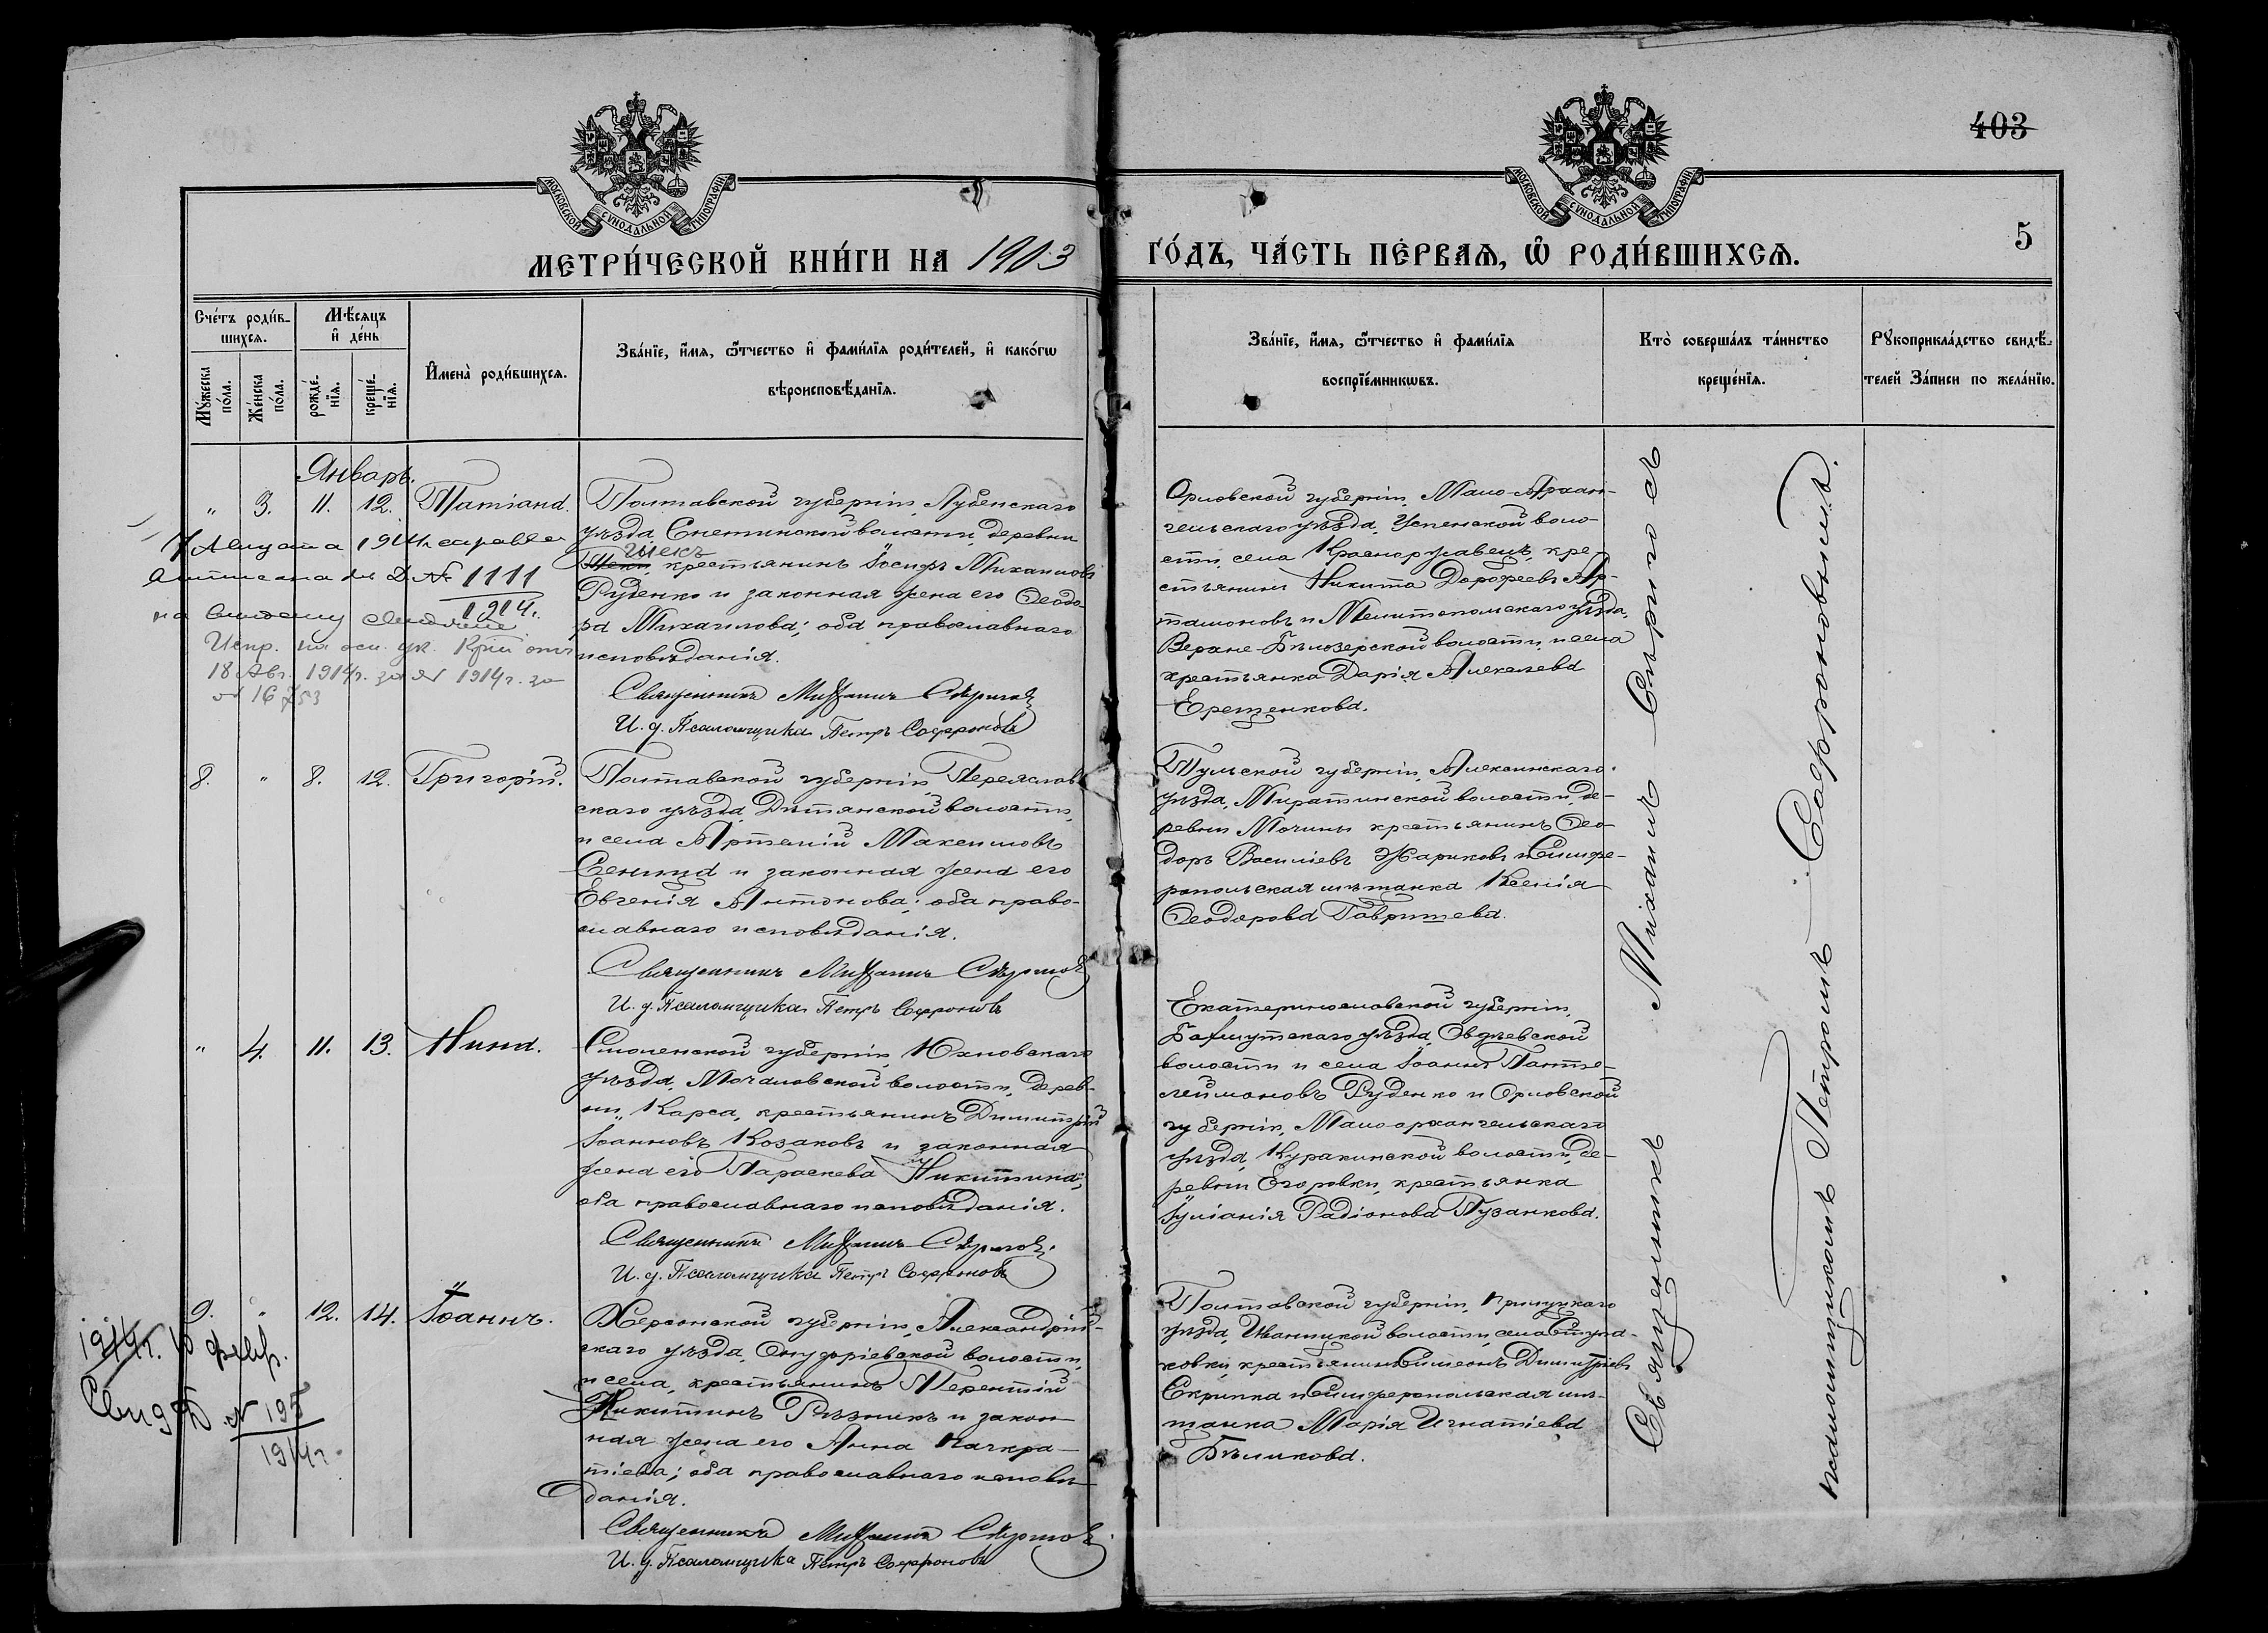 403
5
МОСКОВСКОЙ СУНОДАЛЬНОЙ ТИПОГРАФІИ
МОСКОВСКОЙ СУНОДАЛЬНОЙ ТИПОГРАФІИ
МЕТРИ́ЧЕСКОЙ КНИ́ГИ НА 1903 ГО́ДЪ, ЧА́СТЬ ПЕ́РВАѦ, Ѡ РОДИ́ВШИХСѦ.
Сче́тъ роди́в-
шихсѧ.
Мꙋ́жеска
по́ла.
Же́нска
по́ла.
Мѣ́сяцъ
и҆ де́нь
рожде́-
нїѧ.
креще́-
нїѧ.
И҆мена̀ роди́вшихсѧ.
Зва́нїе, и҆́мѧ, ѻ҆́тчество и҆ фами́лїѧ роди́телей, и҆ како́гѡ
вѣроисповѣ́данїѧ.
Зва́нїе, и҆́мѧ, ѻ҆́тчество и҆ фами́лїѧ
воспрїе́мникѡвъ.
Кто̀ соверша́лъ та́инство
креще́нїѧ.
Рꙋкоприкла́дство свидѣ́-
телей За́писи по жела́нїю.
Январь.
„ 3. 11. 12. Татіана.
Полтавской губерніи, Лубенскаго
уѣзда, Снетинской волости, деревни
Шекъ
крестьянинъ Іосифъ Михаиловъ
Руденко и законная жена его Ѳеодо-
ра Михаилова; оба православнаго
исповѣданія.
Священникъ Михаилъ Сѣриковъ
И. д. Псаломщика Петръ Софроновъ
Орловской губерніи, Мало-Архан-
гельскаго уѣзда, Успенской воло-
сти, села Красноржавецъ, кре-
стьянинъ Никита Дороѳеевъ Ар-
тамоновъ и Мелитопольскаго уѣзда,
Верхне-Бѣлозерской волости, и села
крестьянка Дарія Алексѣева
Еременкова.
7 Августа 1914 г. справка
Д. № 1111
1914.
Испр. на осн. ук. от
18 Авг. 1914 г. за № 1914 г. за
№ 16753
8. „ 8. 12. Григорій.
Полтавской губерніи, Переяслав-
скаго уѣзда, волости,
и села Артемій Максимовъ
и законная жена его
Евгенія Антонова; оба право-
славнаго исповѣданія.
Священникъ Михаилъ Сѣриковъ
И. д. Псаломщика Петръ Софроновъ
Тульской губерніи, Алексинскаго
уѣзда, волости, де-
ревни крестьянинъ Ѳео-
доръ Василіевъ Жариковъ и Симфе-
ропольская мѣщанка Ксенія
Ѳеодорова
„ 4. 11. 13. Нина.
Смоленской губерніи, Юхновскаго
уѣзда, волости, дерев-
ни Карса, крестьянинъ Димитрій
Іоанновъ Козаковъ и законная
жена его Параскева Никитина;
оба православнаго исповѣданія.
Священникъ Михаилъ Сѣриковъ
И. д. Псаломщика Петръ Софроновъ
Екатеринославской губерніи,
Бахмутскаго уѣзда,
волости и села Іоаннъ Панте-
леймоновъ Руденко и Орловской
губерніи, Малоархангельскаго
уѣзда, Куракинской волости, де-
ревни Егоровки, крестьянка
Іуліанія Радіонова Пузанкова.
9. „ 12. 14. Іоаннъ.
Херсонской губерніи, Александрій-
скаго уѣзда, Онуфріевской волости,
и села, крестьянинъ Терентій
Никитинъ Рѣзникъ и закон-
ная жена его Анна Панкра-
тіева; оба православнаго исповѣ-
данія.
Священникъ Михаилъ Сѣриковъ
И. д. Псаломщика Петръ Софроновъ
Полтавской губерніи, Прилуцкаго
уѣзда, Иваницкой волости, села
крестьянинъ Симеонъ Димитріевъ
Скрипка и Симферопольская мѣ-
щанка Марія Игнатіева
Бѣликова.
1914 г. 10 февр.
№ 195
1914 г.
Священникъ Михаилъ Сѣриковъ съ
псаломщикомъ Петромъ Софроновымъ.